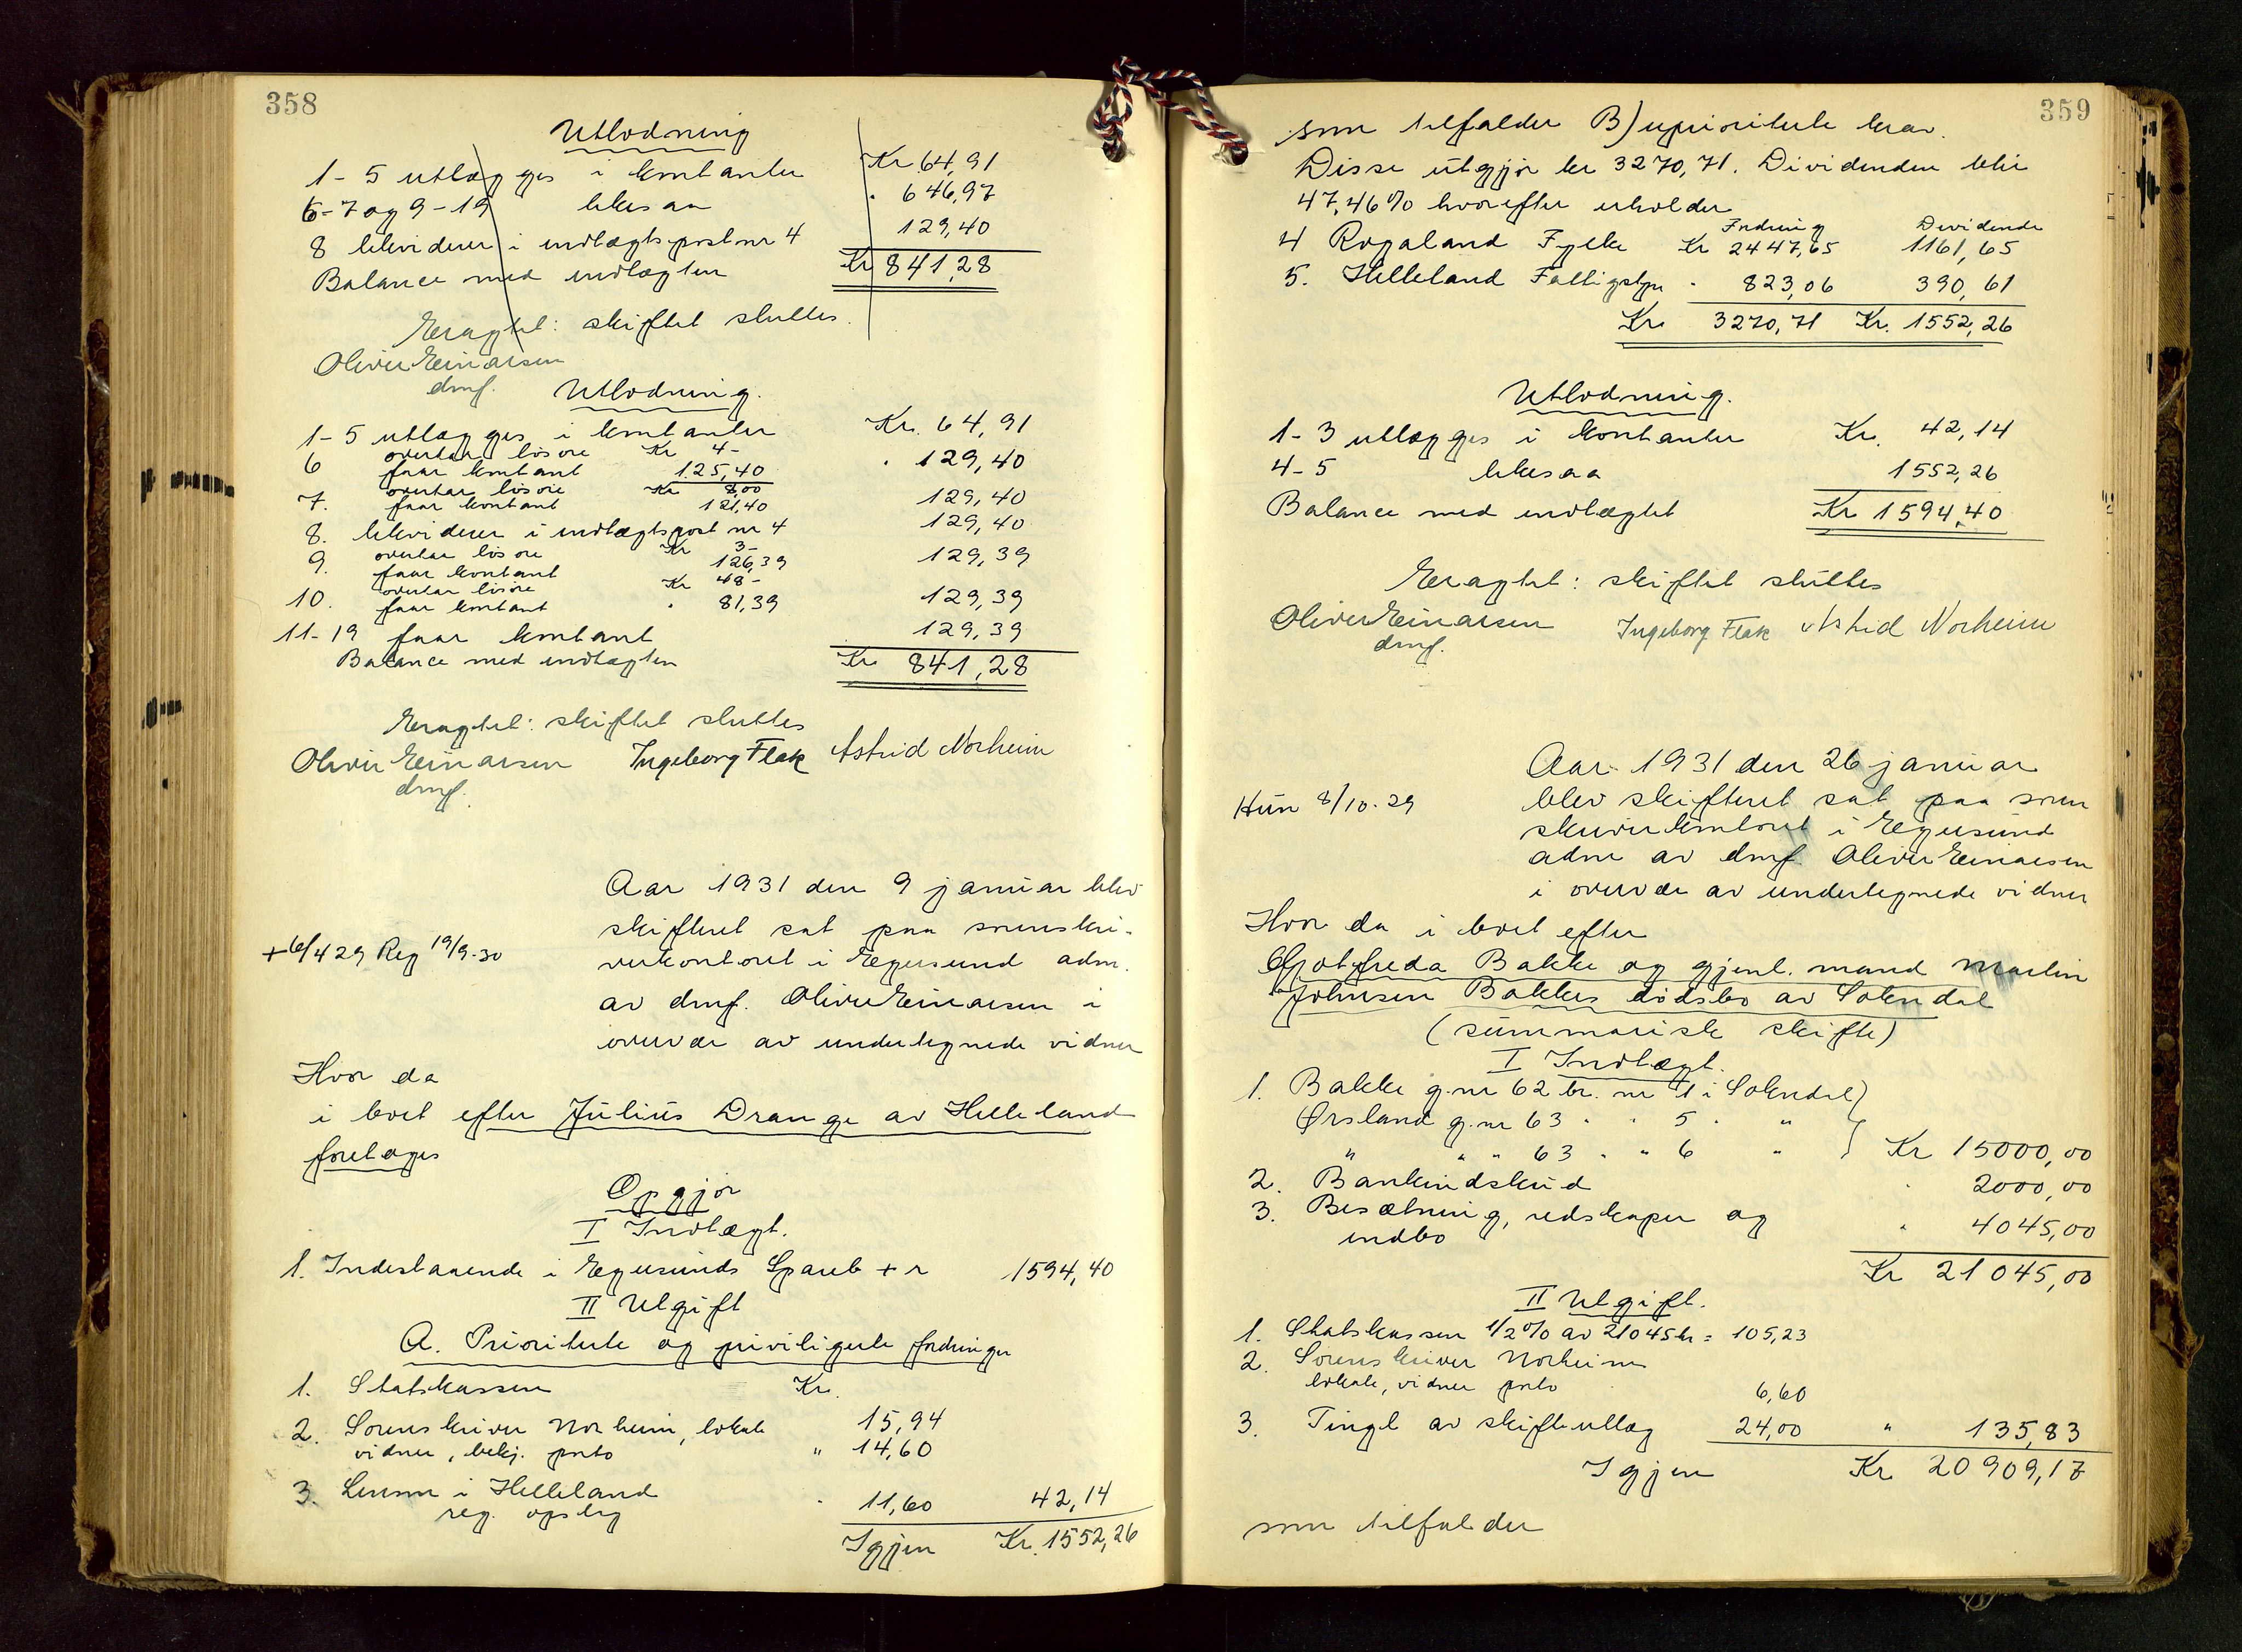 358
Utlodning
1-5 utlægges i kontanter Kr. 64,91
6-7 og 9-19 likesaa " 646,97
8 likviderer i indtægtspost nr 4 129,40
Balance med indtægten Kr 841,28
Eragtet: skiftet sluttes.
Oliver Einarsen
dmf.
Utlodning.
1-5 utlægges i kontanter Kr. 64,91
6 overtar løsøre Kr 4-
faar kontant 125,40 " 129,40
7. overtar løsøre Kr 8,00
faar kontant 121,40 129,40
8. likviderer i indtægtspost nr 4 129,40
9. overtar løsøre Kr 3-
faar kontant 126,39 129,39
10. overtar løsøre Kr 48-
faar kontant " 81,39 129,39
11-19 faar kontant 129,39
Balance med indtægten Kr 841,28
Eragtet: skiftet sluttes
Oliver Einarsen Ingeborg Flak Astrid Norheim
dmf.
Aar 1931 den 9 januar blev
skifteret sat paa sorenskri-
verkontoret i Egersund adm.
+ 6/4 29 Reg 19/9-30
av dmf. Oliver Einarsen i
overvær av undertegnede vidner
Hvor da
i boet efter Julius Drange av Helleland
foretages
Opgjør
I Indtægt.
1. Indestaaende i Egersunds Spareb + r 1594,40
II Utgift
A. Prioriterte og priviligerte fordringer
1. Statskassen Kr. 15,94
2. Sorenskriver Norheim, lokale
vidner, bekj. porto " 14,60
3. Lensm i Helleland
reg. opslag " 11,60 42,14
Igjen Kr. 1552,26
359
som tilfalder B) uprioriterte krav.
Disse utgjør kr 3270,71. Dividenden blir
47,46% hvorefter erholder
Fordring Dividende
4 Rogaland Fylke Kr 2447,65 1161,65
5. Helleland Fattigstyre " 823,06 390,61
Kr 3270,71 Kr. 1552,26
Utlodning.
1-3 utlægges i kontanter Kr. 42,14
4-5 likesaa 1552,26
Balance med indtægtet Kr 1594,40
Eragtet: skiftet sluttes
Oliver Einarsen Ingeborg Flak Astrid Norheim
dmf.
Aar 1931 den 26 januar
Hun 8/10-29
blev skifteret sat paa soren
skriverkontoret i Egersund
adm av dmf Oliver Einarsen
i overvær av undertegnede vidner
Hvor da i boet efter
Gjotfreda Bakke og gjenl. mand Martin
Johnsen Bakkes dødsbo av Sokndal
(summarisk skifte)
I Indtægt.
1. Bakke g.nr 62 br. nr 1 i Sokndal
Ørsland g.nr 63 " " 5 " "
" " " 63 " " 6 " Kr 15000,00
2. Bankindskud " 2000,00
3. Besætning, redskaper og
indbo " 4045,00
Kr 21045,00
II Utgift.
1. Statskassen 1/2% av 21045 kr = 105,23
2. Sorenskriver Norheim
lokale, vidner porto 6,60
3. Tingl av skifteutlæg 24,00 " 135,83
Igjen Kr 20909,17
som tilfalder